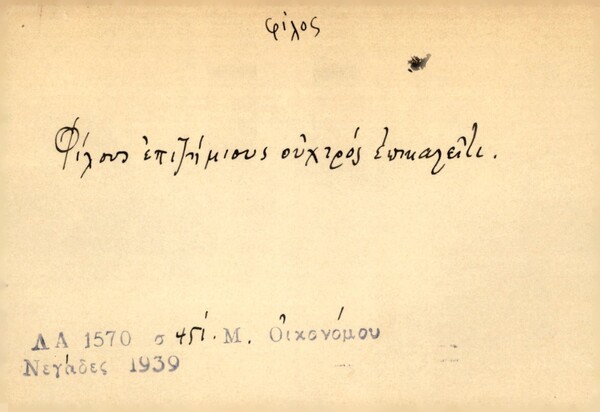 φίλος
Φίλους ἐπιζήμιους οὐχτρός ἐπικαλεῖτι.
ΛΑ 1570 σ 451. Μ. Οἰκονόμου
Νεγάδες 1939